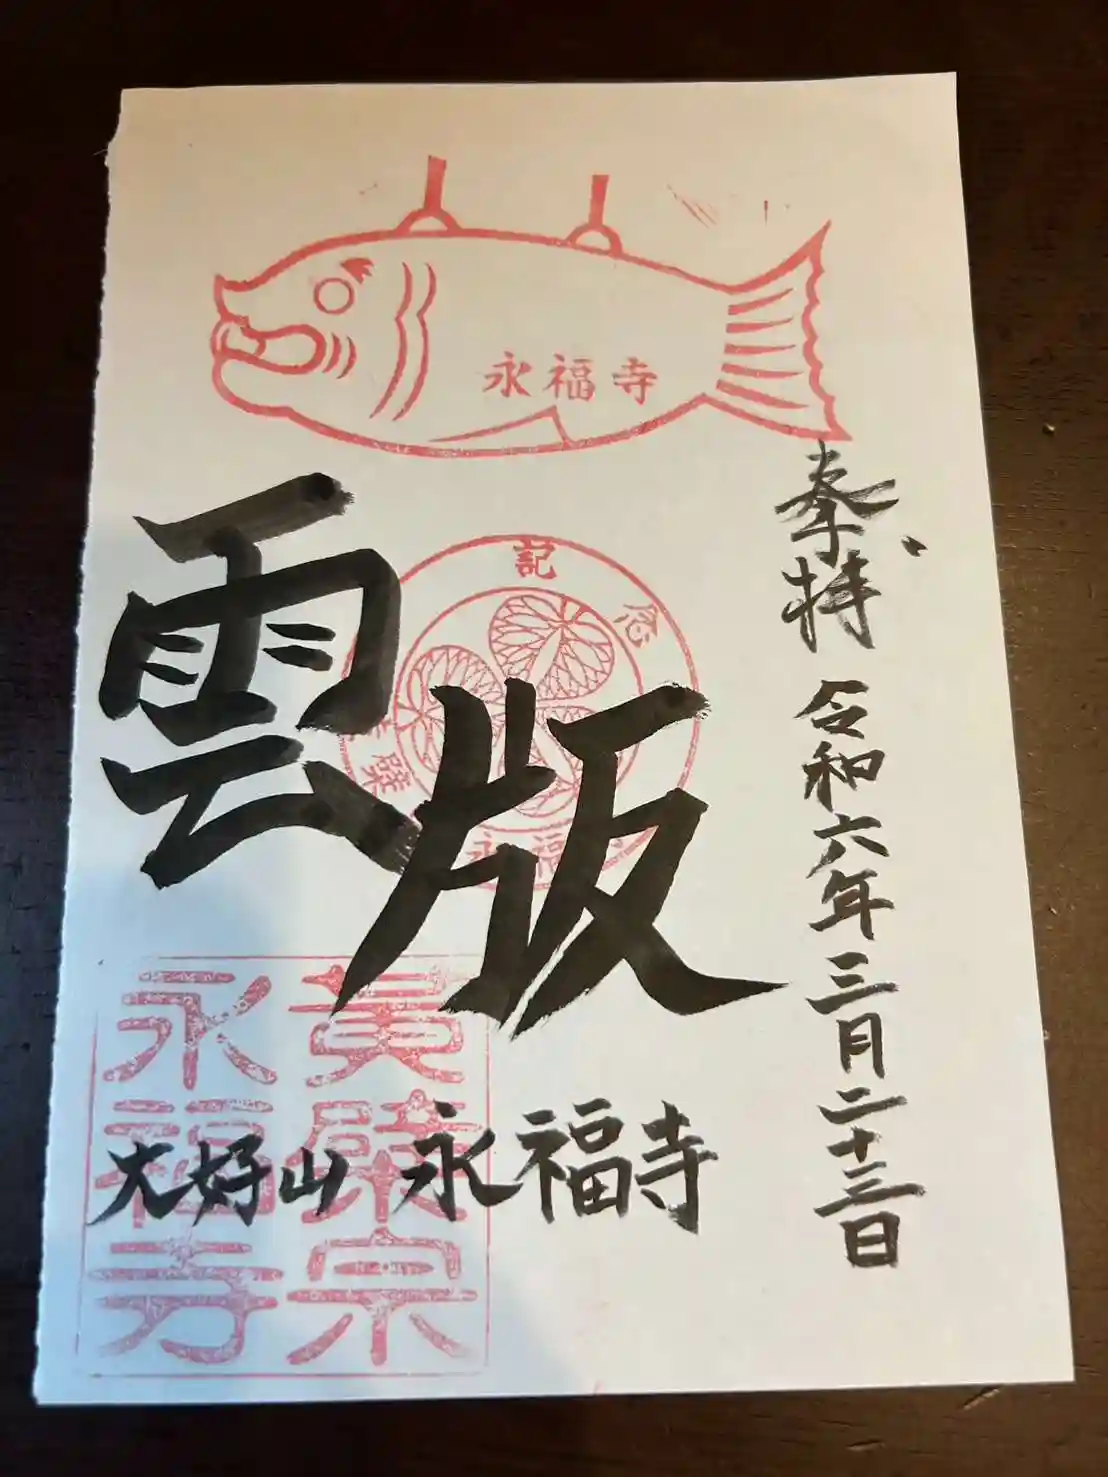 永福寺
奉拝 令和六年三月二十三日
記念
永福
雲版
大好山 永福寺
黄檗宗
永福寺